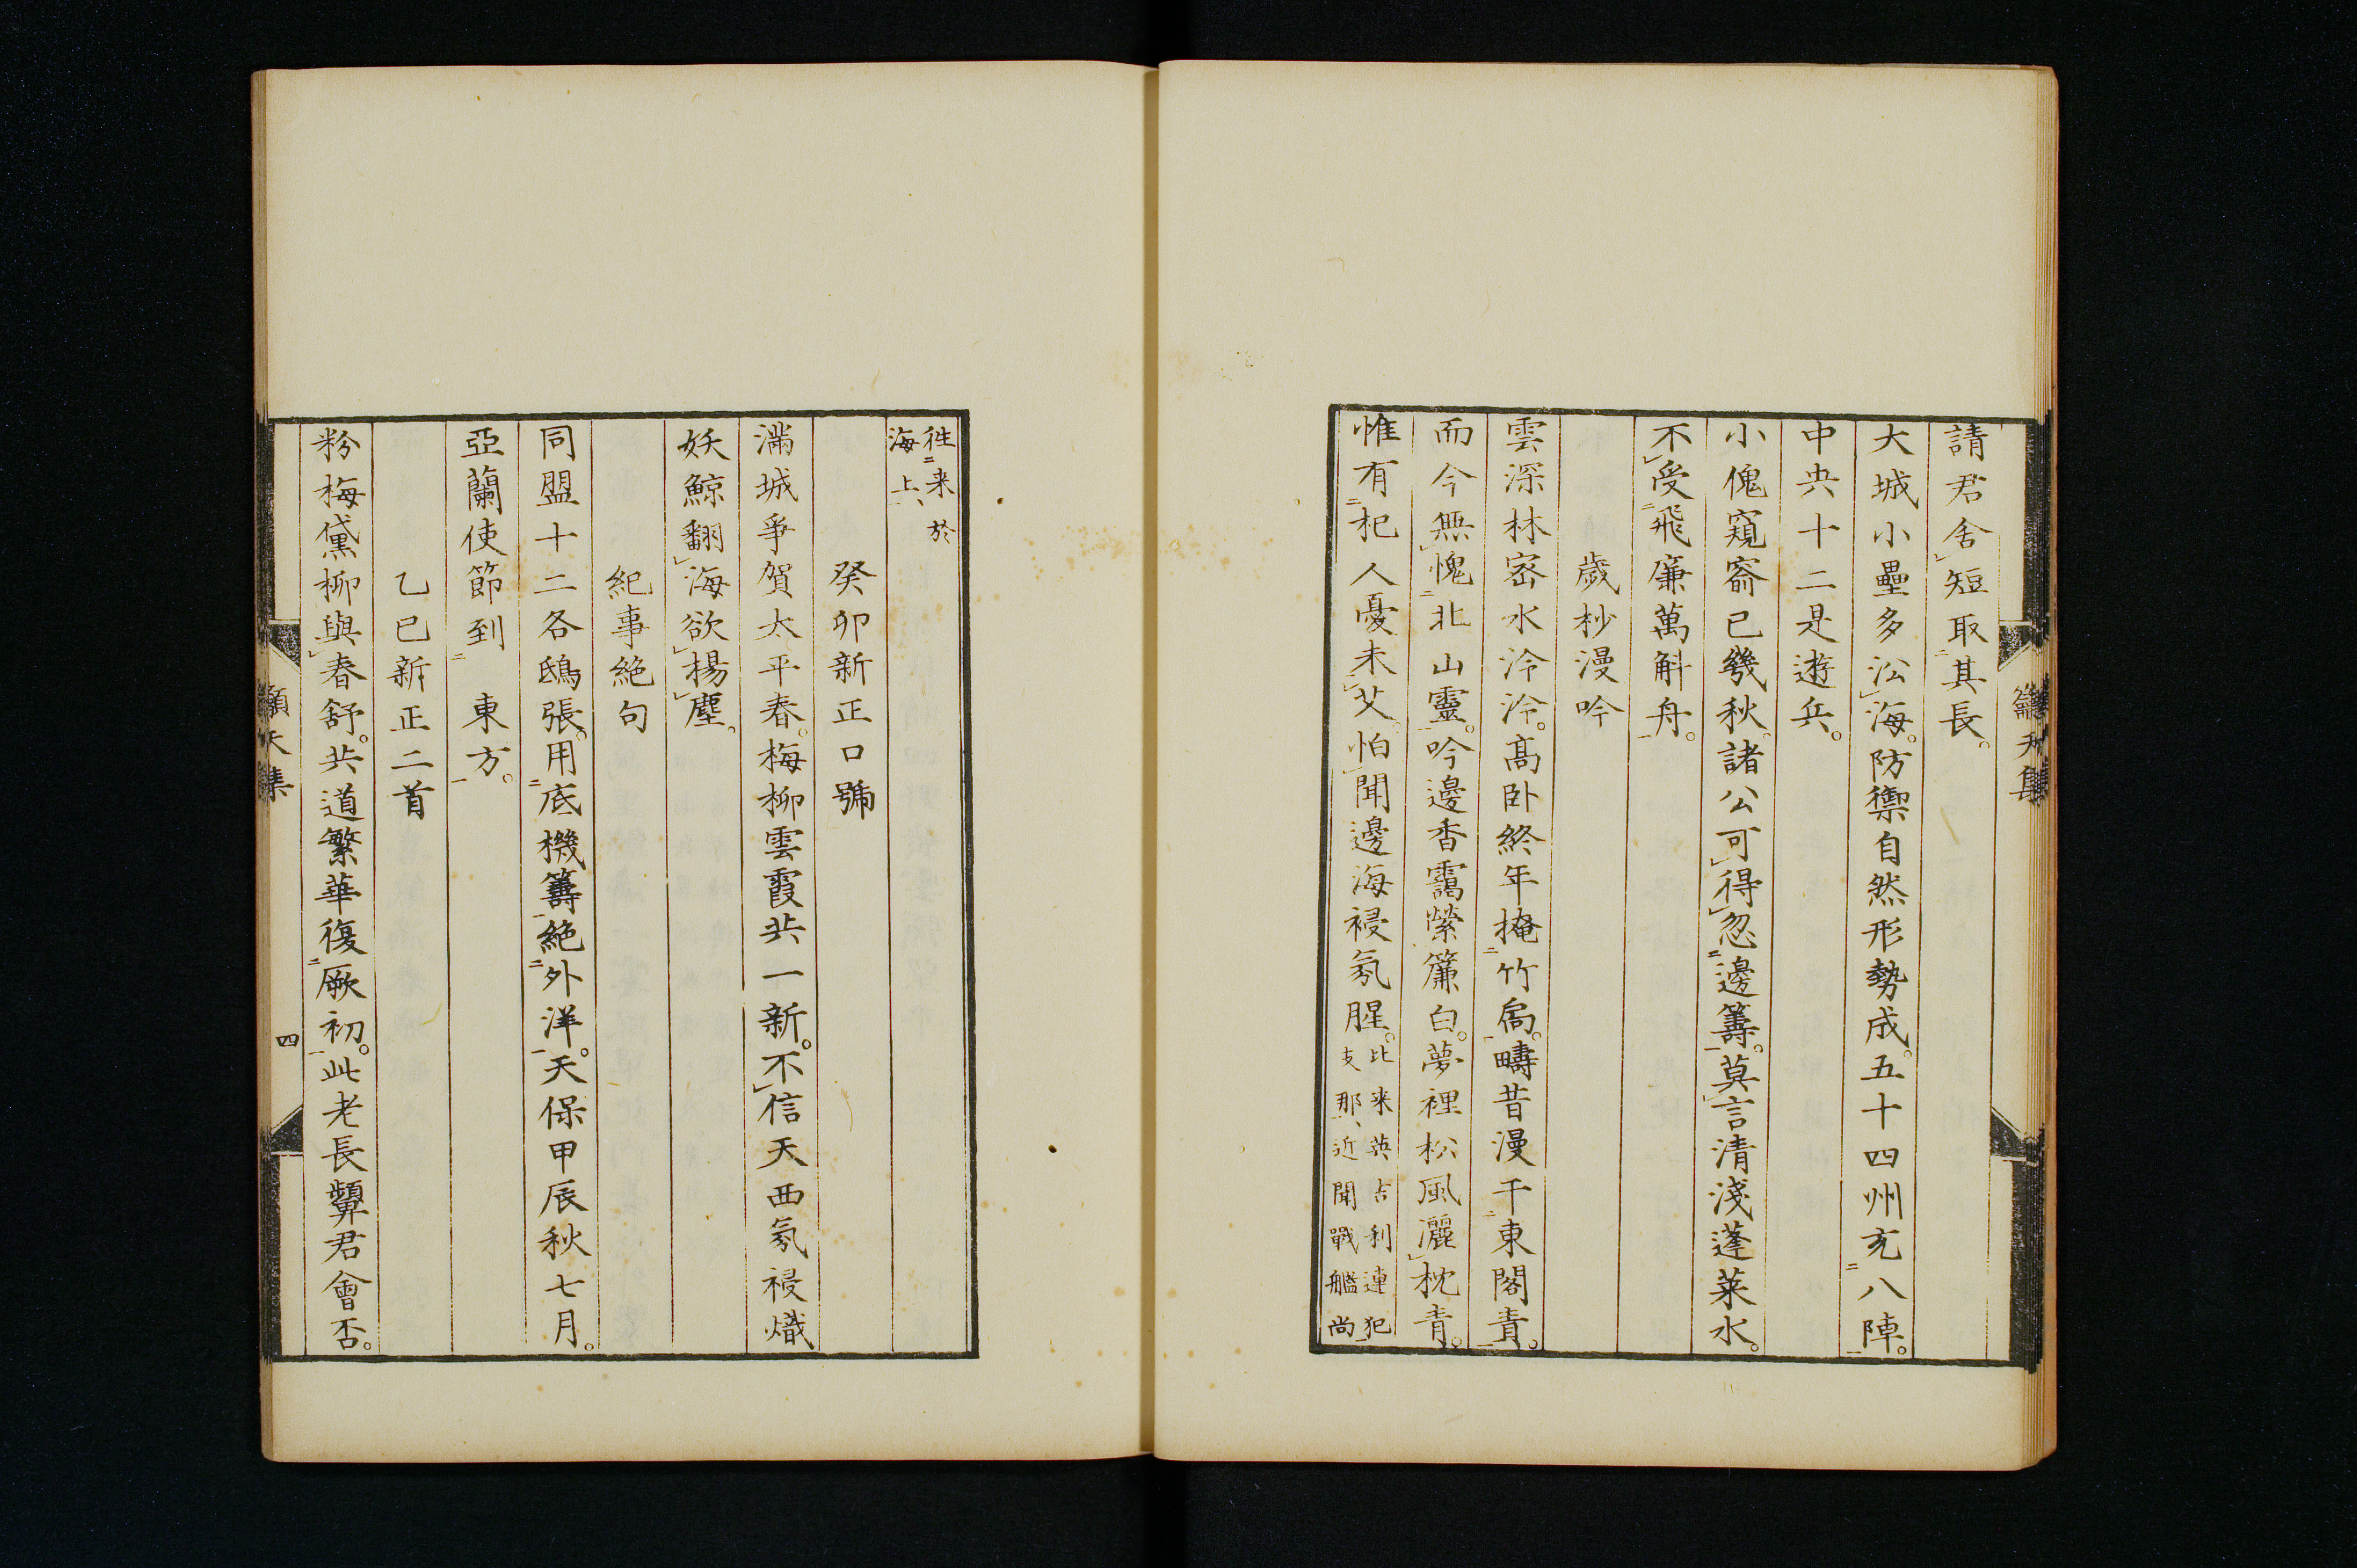 請君舍短取其長。
大城小壘多㳂海。防禦自然形勢成。五十四州充八陣。
中央十二是遊兵。
小傀窺窬已幾秋。諸公可得忽邊籌。莫言清淺蓬萊水。
不受飛廉萬斛舟。
歲杪漫吟
雲深林密水泠泠。高臥終年掩竹扃。疇昔漫干東閣責。
而今無愧北山靈。吟邊香靄縈簾白。夢裡松風灑枕青。
惟有杞人憂未艾。怕聞邊海祲氛腥。比来英吉利連犯
支那、近聞戰艦尚
往来於
海上、
癸卯新正口號
滿城爭賀太平春。梅柳雲霞共一新。不信天西氛祲熾
妖鯨翻海欲揚塵。
紀事絕句
同盟十二各鴟張。用底機籌絕外洋。天保甲辰秋七月。
亞蘭使節到東方。
乙巳新正二首
粉梅黛柳與春舒。共道繁華復厥初。此老長顰君會否。
籲天集
四